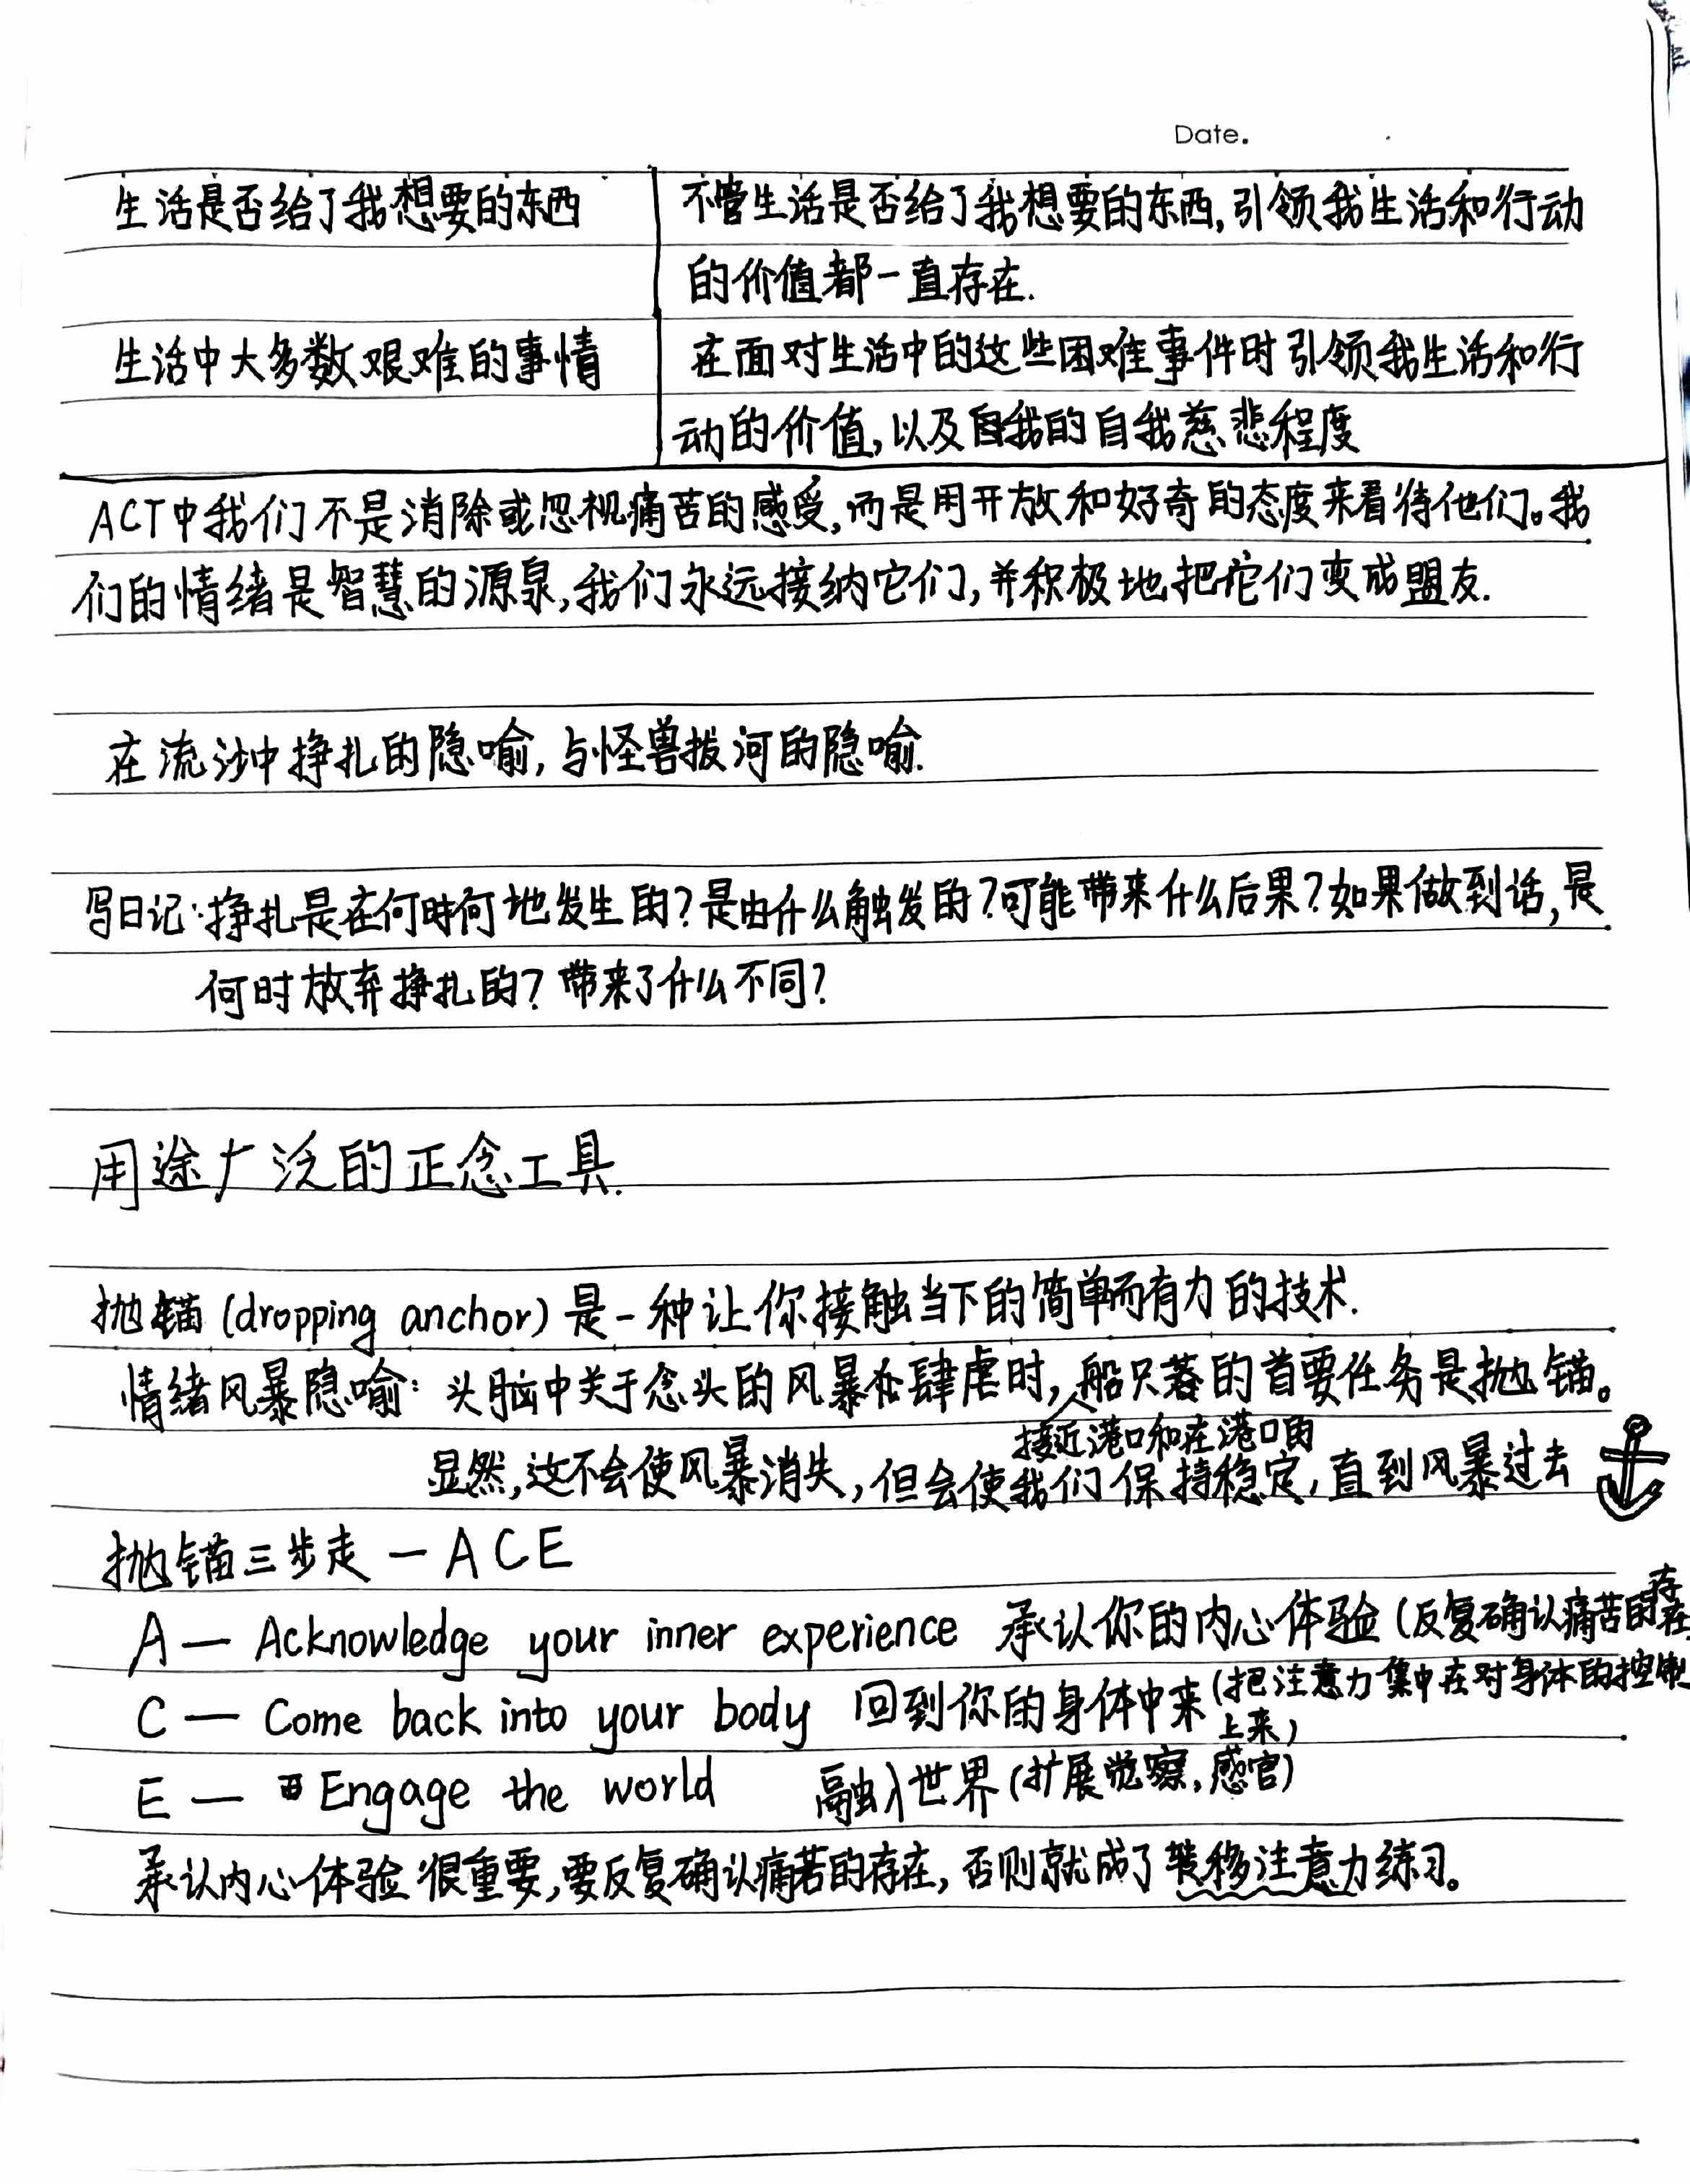 Date.
生活是否给了我想要的东西
不管生活是否给了我想要的东西,引领我生活和行动
的价值都一直存在.
生活中大多数艰难的事情
在面对生活中的这些困难事件时引领我生活和行
动的价值,以及自我的自我慈悲程度
ACT中我们不是消除或忽视痛苦的感受,而是用开放和好奇的态度来看待他们。我
们的情绪是智慧的源泉,我们永远接纳它们,并积极地把它们变成盟友.
在流沙中挣扎的隐喻,与怪兽拔河的隐喻.
写日记:挣扎是在何时何地发生的?是由什么触发的?可能带来什么后果?如果做到话,是
何时放弃挣扎的?带来了什么不同?
用途广泛的正念工具.
抛锚(dropping anchor)是一种让你接触当下的简单而有力的技术.
情绪风暴隐喻:头脑中关于念头的风暴在肆虐时,船只的首要任务是抛锚。
接近港口和在港口的
显然,这不会使风暴消失,但会使我们保持稳定,直到风暴过去
抛锚三步走—ACE
A— Acknowledge your inner experience 承认你的内心体验(反复确认痛苦的存在
C— Come back into your body 回到你的身体中来(把注意力集中在对身体的控制
上来)
E— Engage the world 融入世界(扩展觉察,感官)
承认内心体验很重要,要反复确认痛苦的存在,否则就成了转移注意力练习。